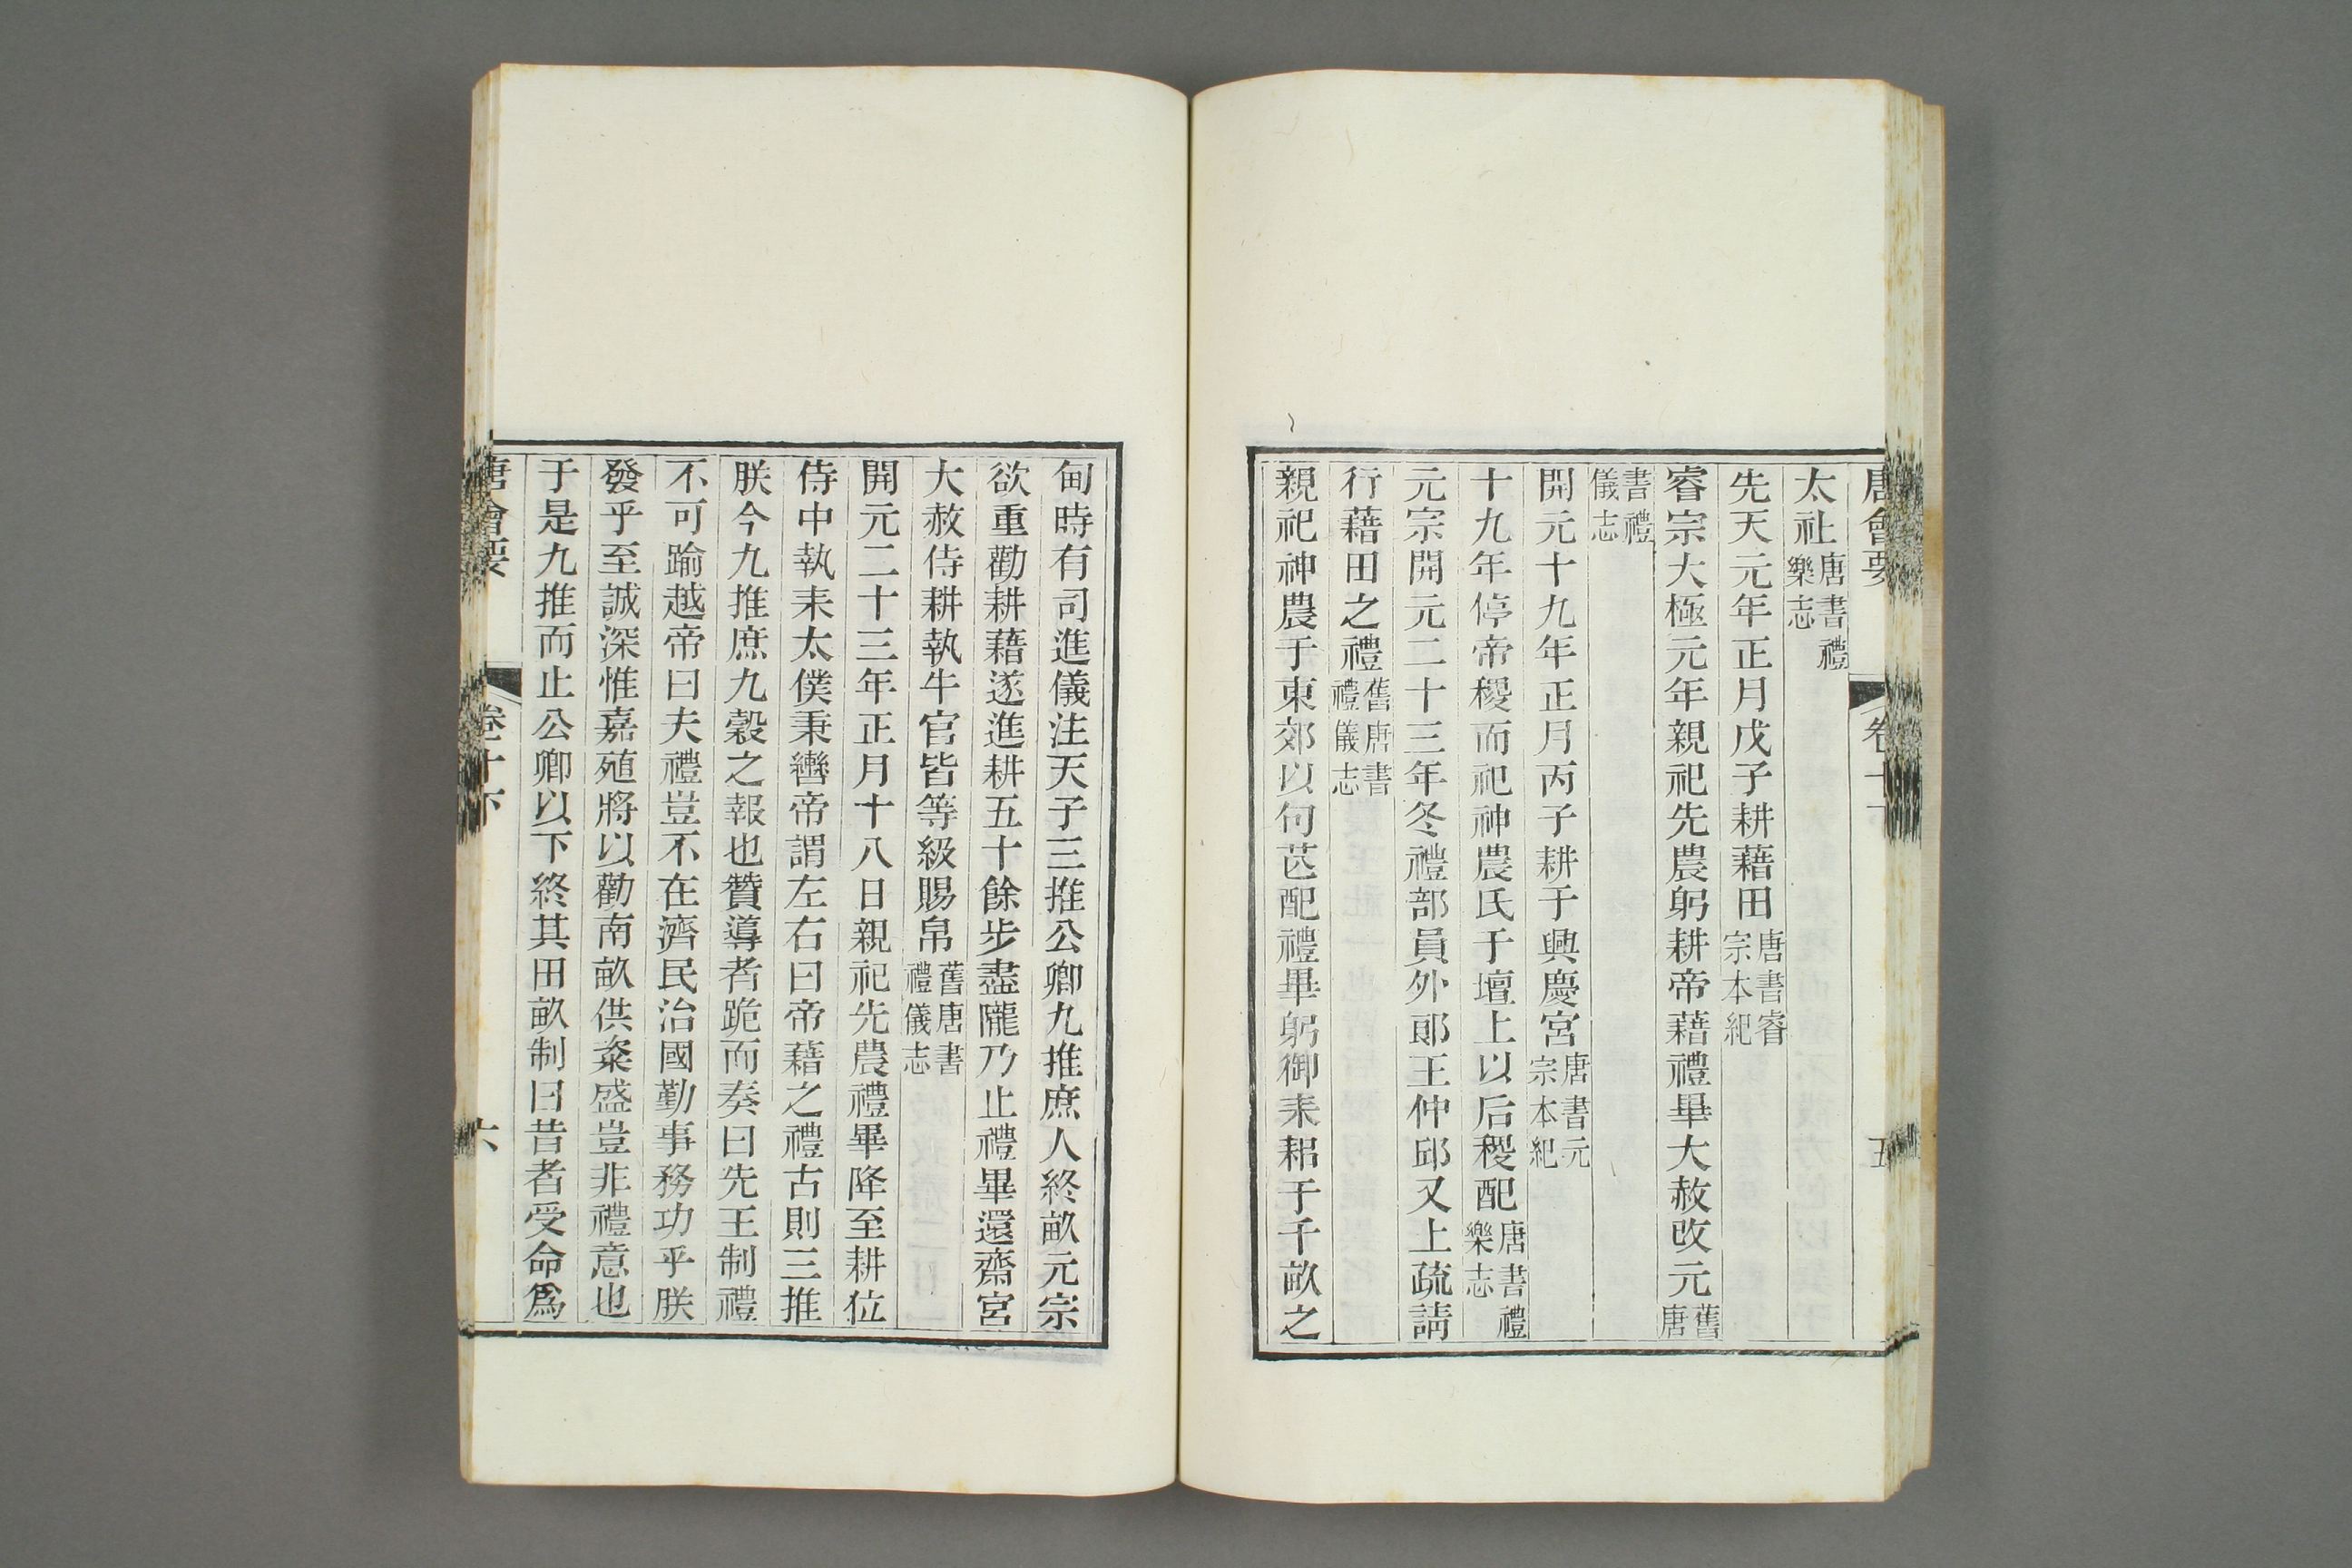 唐會要 卷十下 五
太社唐書禮樂志
先天元年正月戊子耕藉田唐書睿宗本紀
睿宗大極元年親祀先農躬耕帝藉禮畢大赦改元舊唐
書禮儀志
開元十九年正月丙子耕于興慶宮唐書元宗本紀
十九年停帝稷而祀神農氏于壇上以后稷配唐書禮樂志
元宗開元二十三年冬禮部員外郎王仲邱又上疏請
行藉田之禮舊唐書禮儀志
親祀神農于東郊以句芒配禮畢躬御耒耜于千畝之
甸時有司進儀注天子三推公卿九推庶人終畝元宗
欲重勸耕藉遂進耕五十餘步盡隴乃止禮畢還齋宮
大赦侍耕執牛官皆等級賜帛舊唐書禮儀志
開元二十三年正月十八日親祀先農禮畢降至耕位
侍中執耒太僕秉轡帝謂左右曰帝藉之禮古則三推
朕今九推庶九穀之報也贊導者跪而奏曰先王制禮
不可踰越帝曰夫禮豈不在濟民治國勤事務功乎朕
發乎至誠深惟嘉殖將以勸南畝供粢盛豈非禮意也
于是九推而止公卿以下終其田畝制曰昔者受命爲
唐會要 卷十下 六